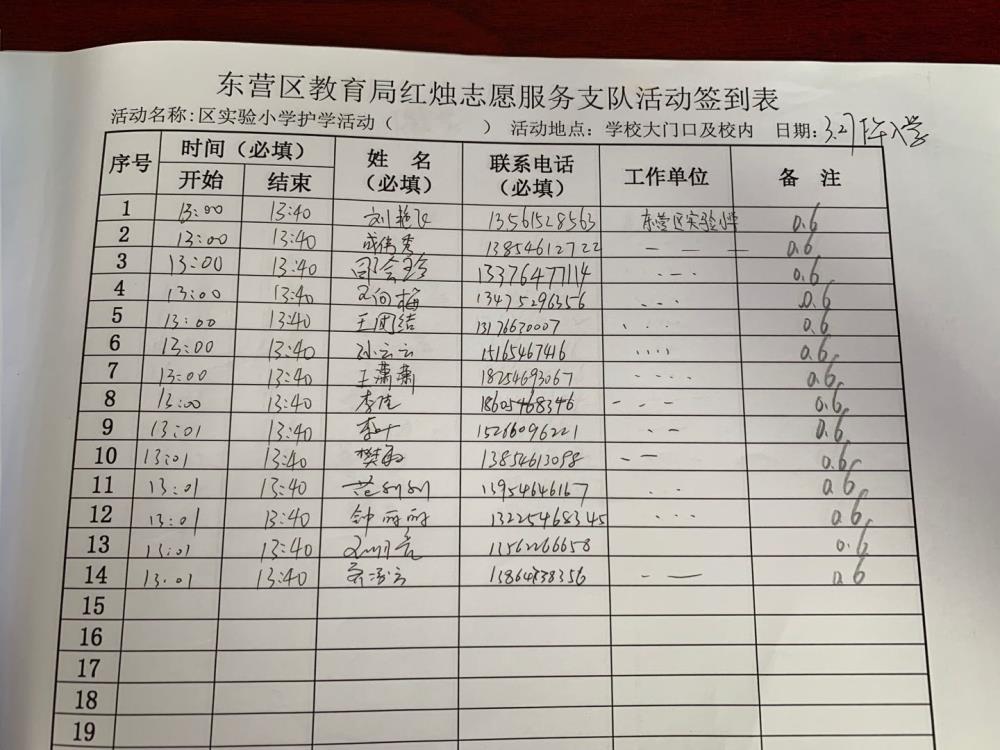 东营区教育局红烛志愿服务支队活动签到表
活动名称：区实验小学护学活动（ ） 活动地点：学校大门口及校内 日期：3.27下午入学
序号 时间（必填） 姓 名（必填） 联系电话（必填） 工作单位 备 注
开始 结束
1 13:00 13:40 刘艳飞 13561528563 东营区实验小学 0.6
2 13:00 13:40 成伟秀 13854612722 — — — 0.6
3 13:00 13:40 司会玲 13376477114 - - - 0.6
4 13:00 13:40 王向梅 13475296356 . . . 0.6
5 13:00 13:40 王团结 13176670007 . . . 0.6
6 13:00 13:40 孙云云 15165467416 . . . . 0.6
7 13:00 13:40 王潇潇 18254693067 . . . . 0.6
8 13:00 13:40 李佳 18605468346 - - - 0.6
9 13:01 13:40 李叶 15266096221 - - 0.6
10 13:01 13:40 樊 13854613098 - — 0.6
11 13:01 13:40 范 13954646167 . . 0.6
12 13:01 13:40 钟丽丽 13225468345 . . . 0.6
13 13:01 13:40 13562266658 0.6
14 13.01 13:40 - — 0.6
15
16
17
18
19